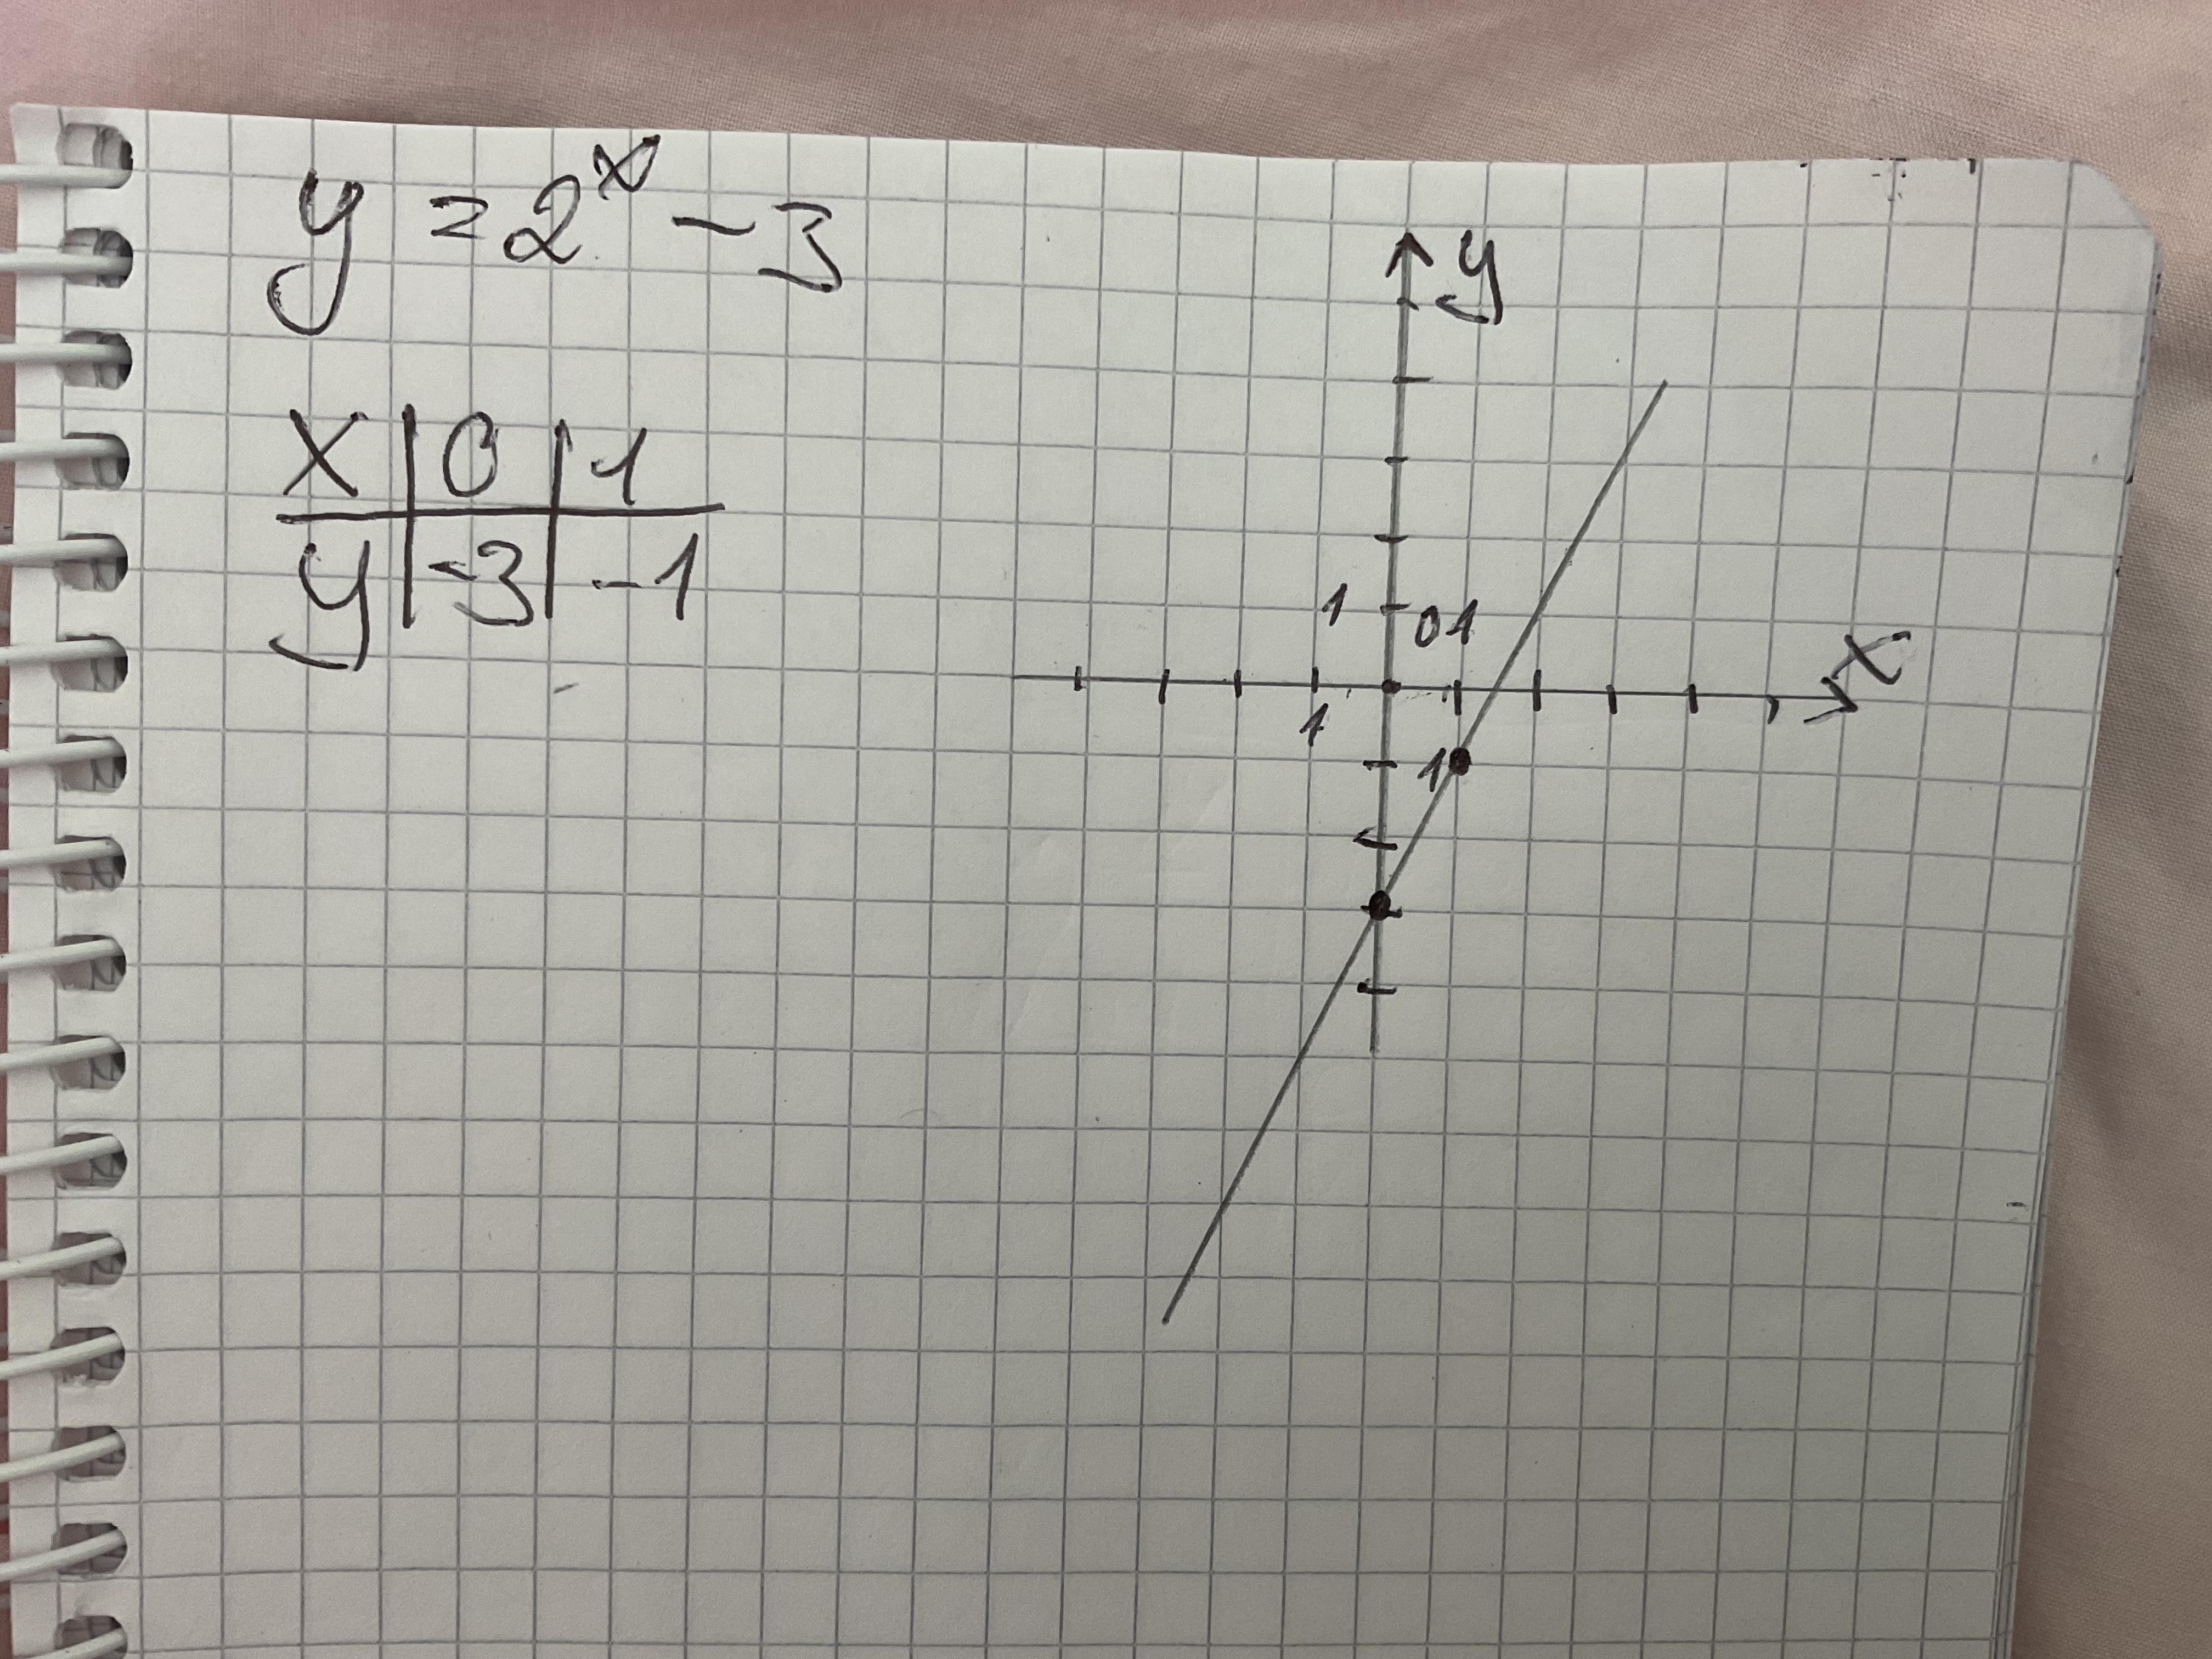 y = 2ˣ - 3
x | 0 | 1
y | -3 | -1
y
1
0 1
x
1
1